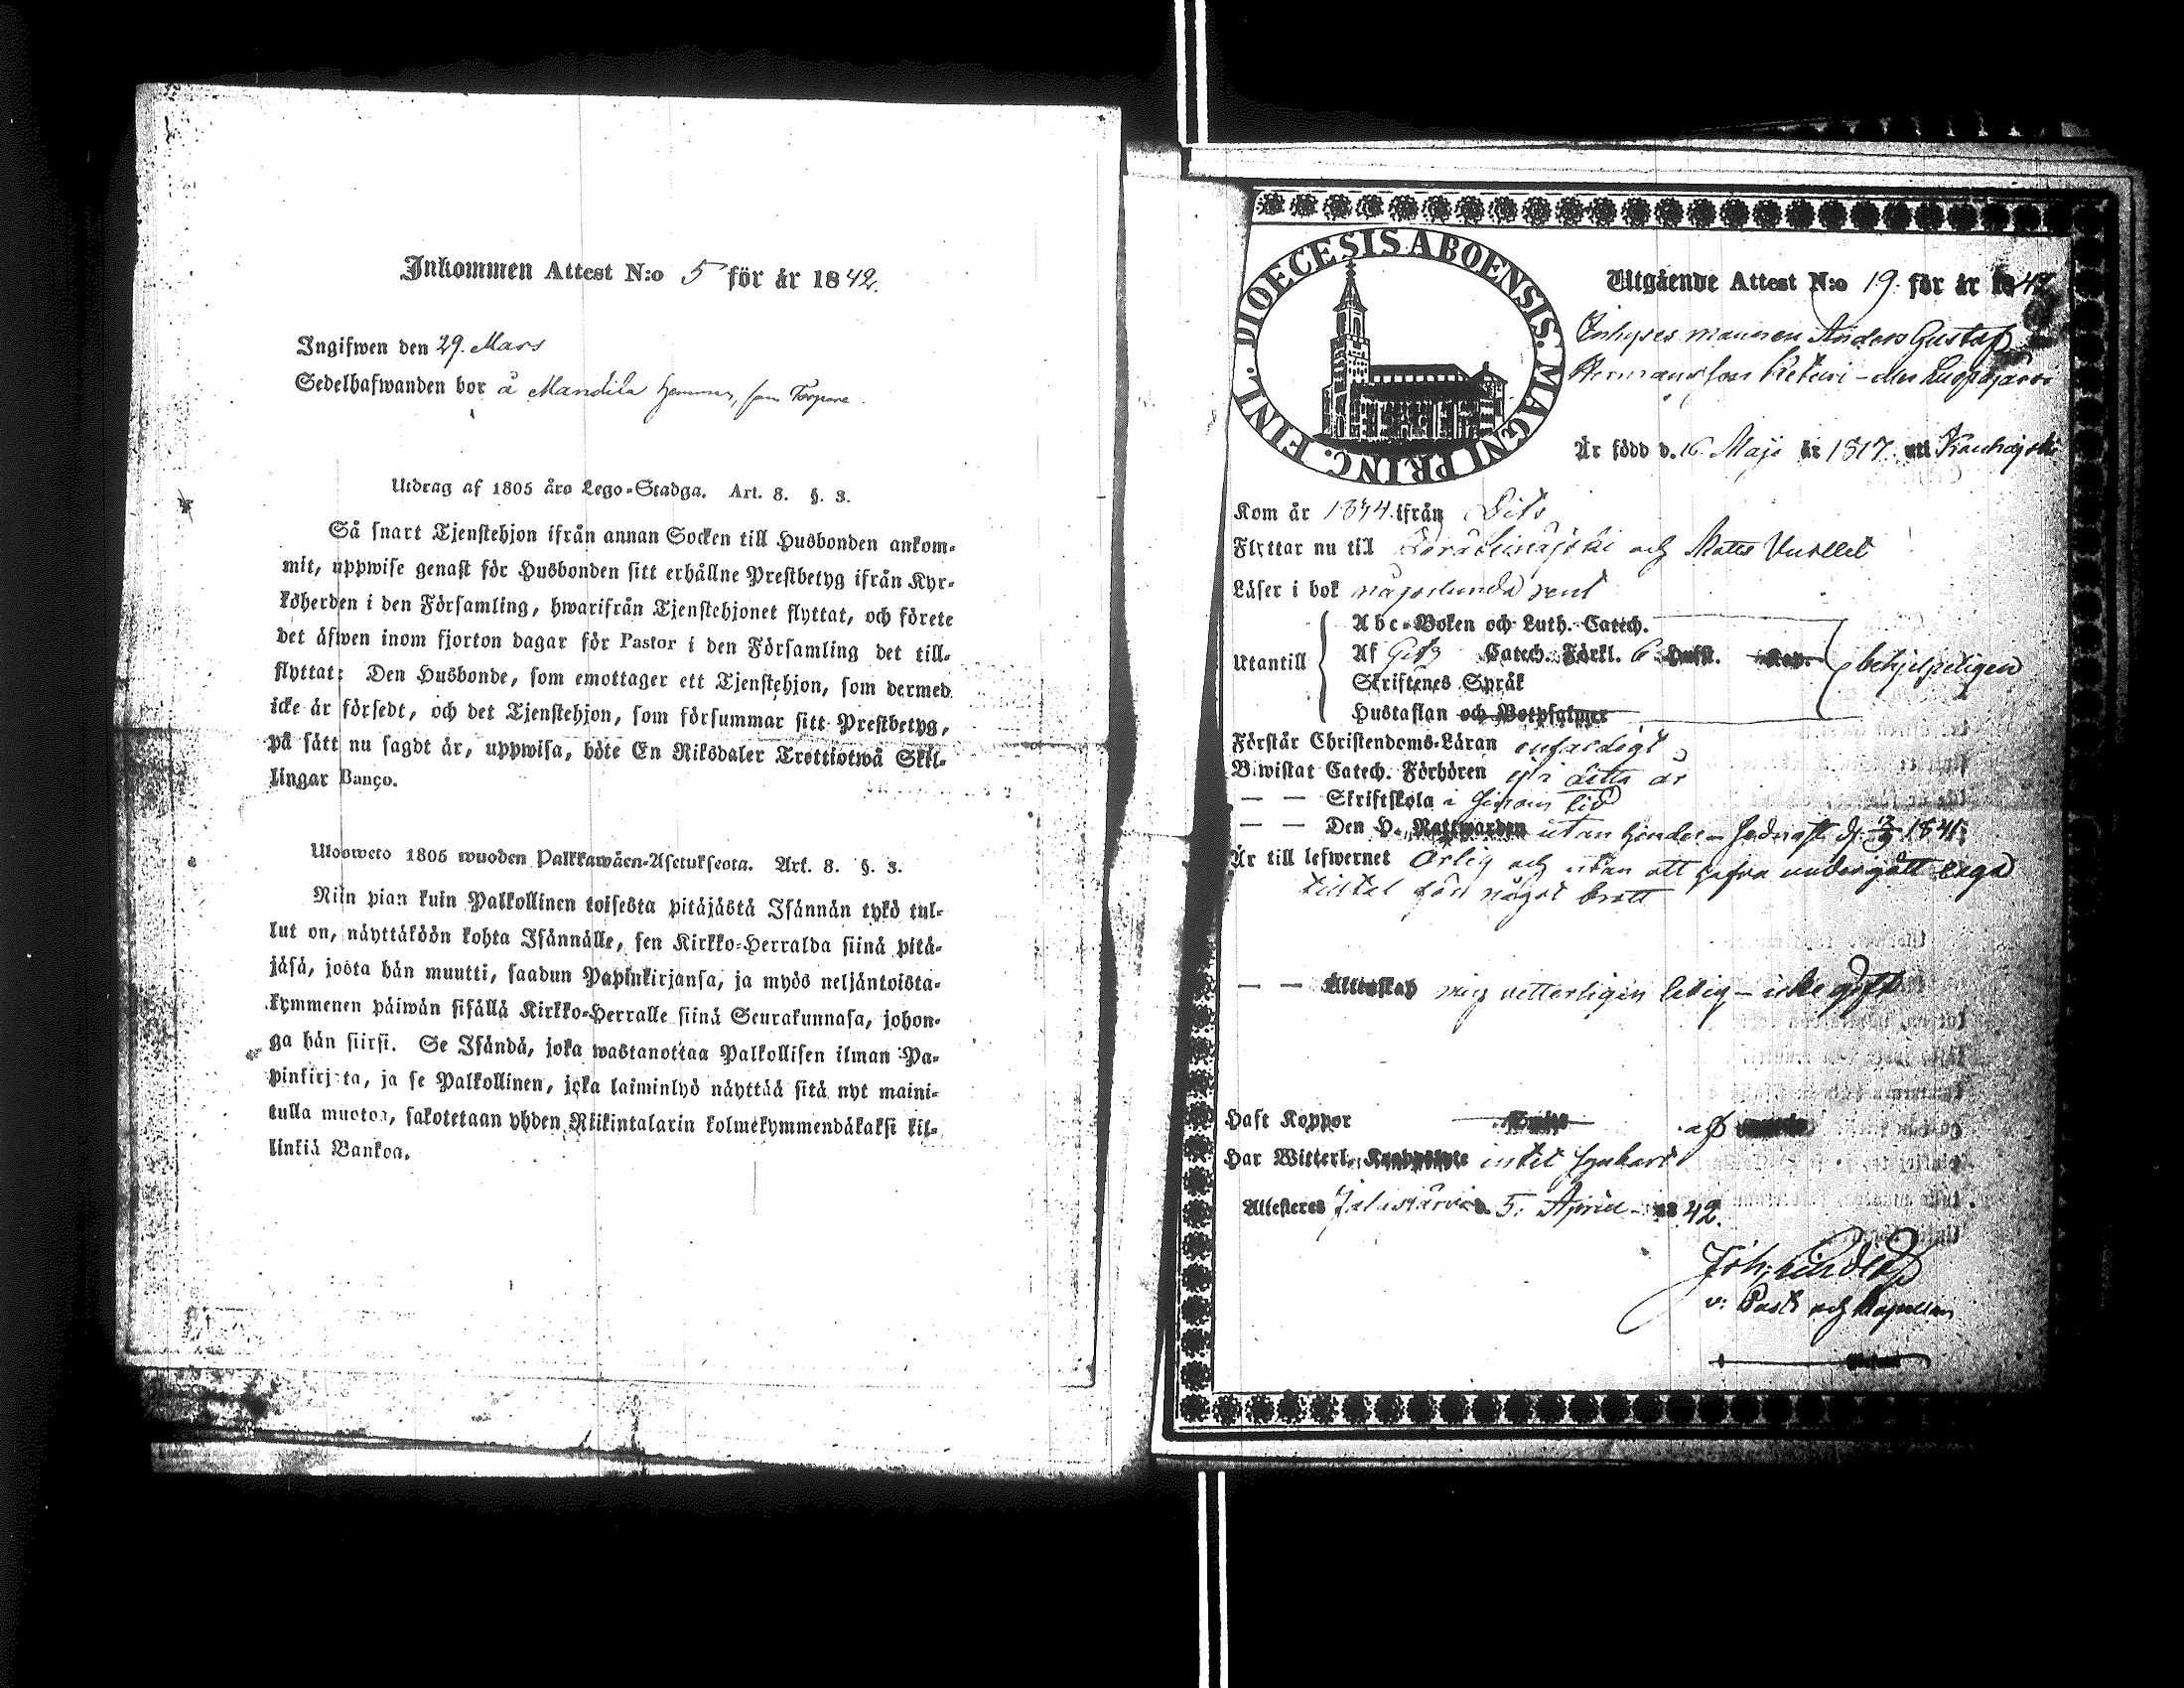 Inkommen Attest N:o 5 för år 1842.
Ingifwen den 29. Mars
Sedelhafwanden bor å Mandila hemman, som Torpare.
Utdrag af 1805 års Lego-Stadga. Art. 8. §. 3.
Så snart Tjenstehjon ifrån annan Socken till Husbonden ankom-
mit, uppwise genast för Husbonden sitt erhållne Prestbetyg ifrån Kyr-
koherden i den Församling, hwarifrån Tjenstehjonet flyttat, och förete
det äfwen inom fjorton dagar för Pastor i den Församling det till-
flyttat: Den Husbonde, som emottager ett Tjenstehjon, som dermed
icke är försedt, och det Tjenstehjon, som försummar sitt Prestbetyg,
på sätt nu sagdt är, uppwisa, böte En Riksdaler Trettiotwå Skil-
lingar Banco.
Ulosweto 1805 wuoden Palkkawäen-Asetuksesta. Art. 8. §. 3.
Niin pian kuin Palkollinen toisesta pitäjästä Isännän tykö tul-
lut on, näyttäköön kohta Isännälle, sen Kirkko-Herralda siinä pitä-
jäsä, josta hän muutti, saadun Papinkirjansa, ja myös neljäntoista-
kymmenen päiwän sisällä Kirkko-Herralle siinä Seurakunnasa, johon-
ga hän siirsi. Se Isändä, joka wastanottaa Palkollisen ilman Pa-
pinkirjata, ja se Palkollinen, joka laiminlyö näyttää sitä nyt maini-
tulla muotoa, sakotetaan yhden Riikintalarin kolmekymmendäkaksi kil-
linkiä Bankoa.
DIOECESIS ABOENSIS. MAGNI PRINC. FINL.
Utgående Attest N:o 19. för år 1842
Inhyses mannen Anders Gustaf
Hermansson Keturi
Är född d. 16 Maji år 1817. uti Kauhajoki
Kom år ifrån
Flyttar nu till och Matts Vuollet
Läser i bok någorlunda rent
Abc-Boken och Luth. Catech.
Utantill Af Catech. Förkl. 6 Hufst. Kap. behjelpeligen
Skriftenes Språk
Hustaflan och Botpsalmer
Förstår Christendoms-Läran enfaldigt
Biwistat Catech. Förhören ej i detta år
— — Skriftskola i sinom tid
— — Den H. Nattwarden utan hinder - sednast d. 1841.
Är till lefwernet ärlig och utan att hafva undergått laga
tilltal för något brott
— — Ächtenskap mig vetterligen ledig - icke gift
Haft Koppor
Har Witterl. intet
Attesteres Jalasjärvi d. 5. April 1842.
Joh.
v: Past: och Kapellan